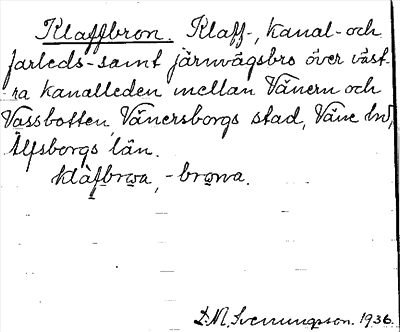 Klaffbron. Klaff-, kanal- och
farleds- samt järnvägsbro över väst-
ra kanalleden mellan Vänern och
Vassbotten, Vänersborgs stad, Väne hd,
Älfsborgs län.
klàfbrωa, -brωna.
D. M. Svenningson. 1936.